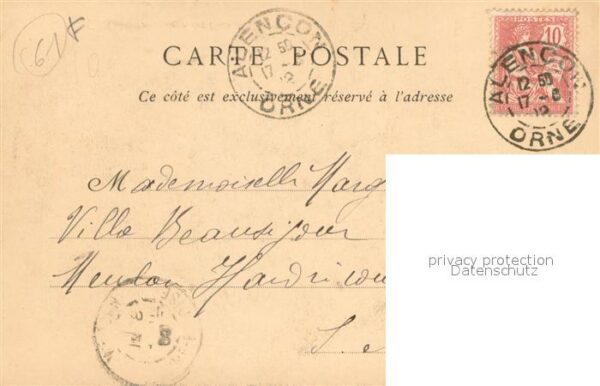 61
CARTE POSTALE
Ce côté est exclusivement réservé à l'adresse
POSTES
10
ALENCON
12 50
17 - 8
ORNE
ALENCON
12 50
17 - 8
ORNE
Mademoiselle Marg
Villa Beauséjour
Meulan Hardricou
S. e
privacy protection
Datenschutz